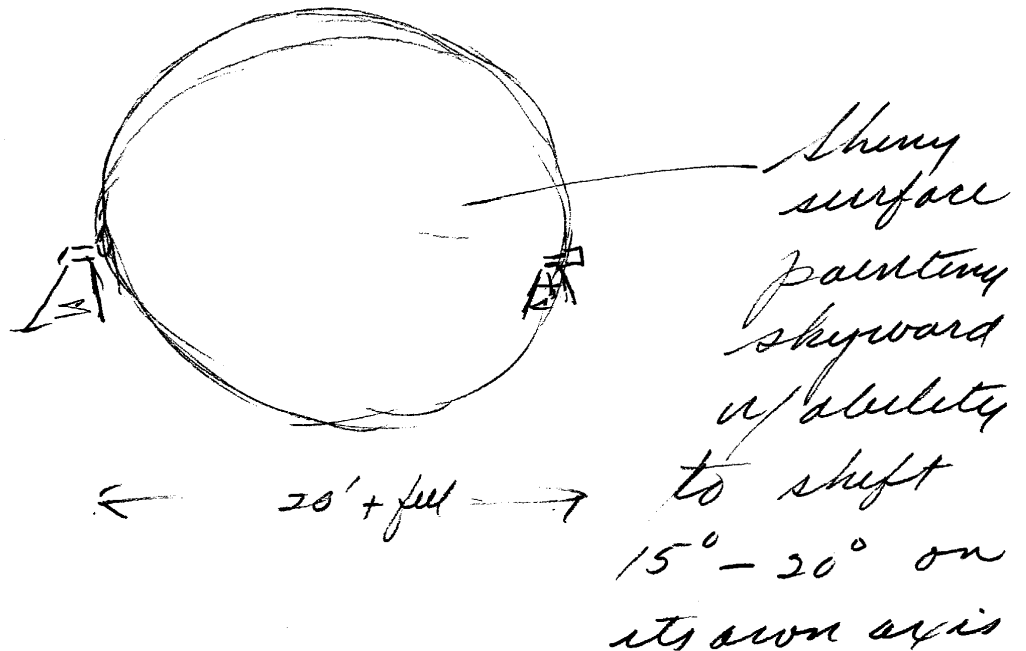 Shiny
surface
pointing
skyward
w/ ability
to shift
20' + feet
15° – 20° on
its own axis